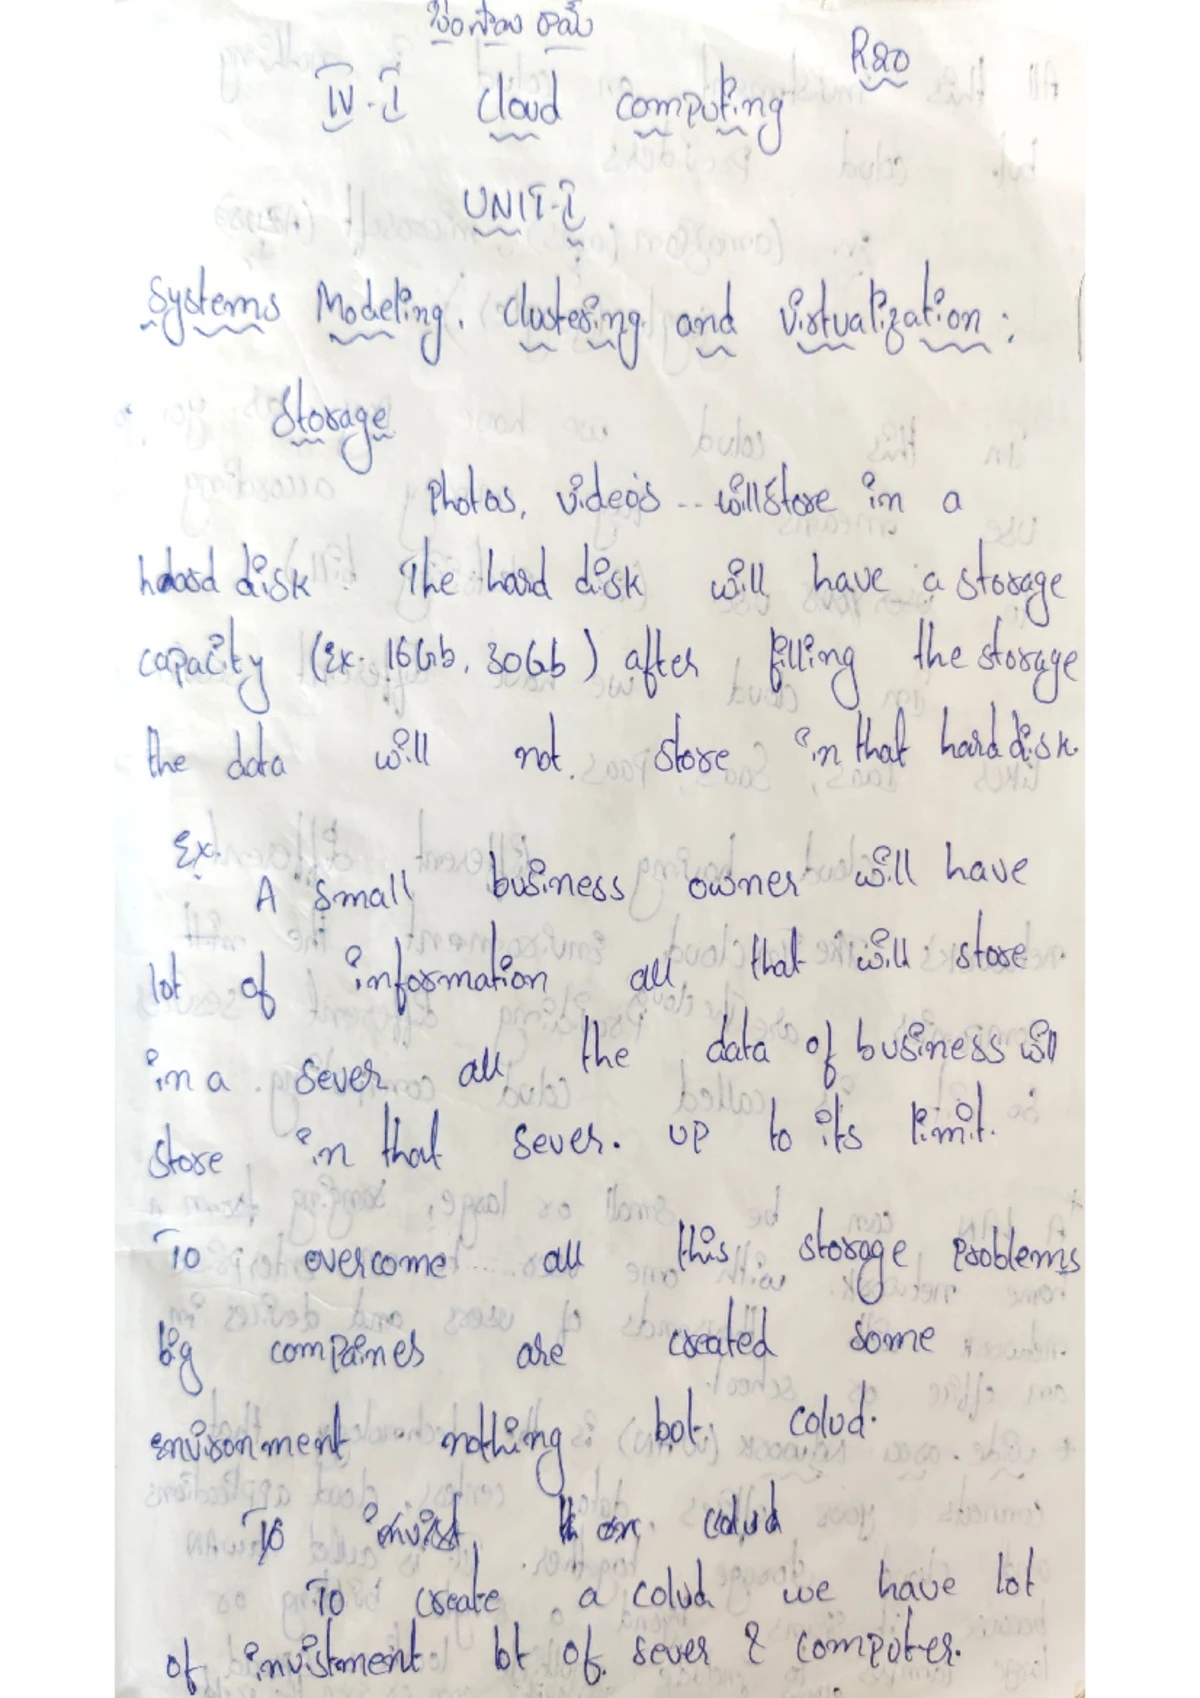 R20
IV-I Cloud computing
UNIT-I
Systems Modeling, Clustering and Virtualization:
Storage
Photos, video's -- will store in a
hard disk The hard disk will have a storage
capacity (Ex. 16Gb, 30Gb) after filling the storage
the data will not store in that hard disk.
Ex.
A small business owner will have
lot of information all that will store
in a sever all the data of business will
store in that sever. up to its limit.
To overcome all this storage problems
big compaines are created some
environment nothing bot colud.
To invist on colud
To create a colud we have lot
of invistment lot of sever & computer.